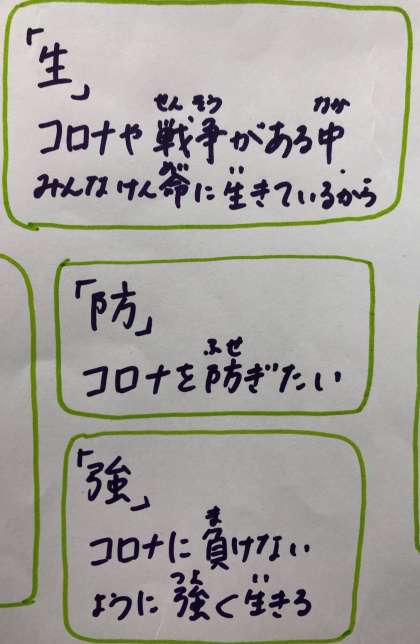 「生」
コロナや戦争がある中
みんなけん命に生きているから
「防」
コロナを防ぎたい
「強」
コロナに負けない
ように強く生きる